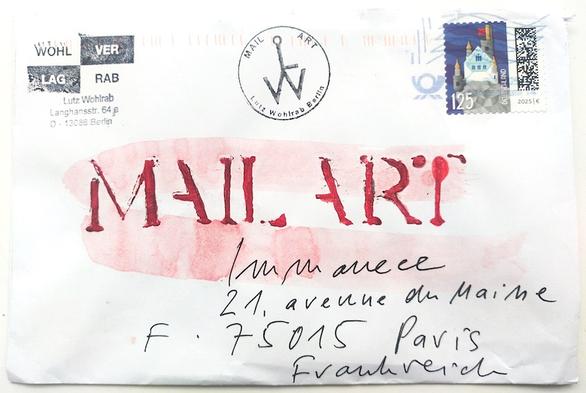 WOHL VER
LAG RAB
Lutz Wohlrab
Langhansstr. 64
D - 13086 Berlin
MAIL ART
Lutz Wohlrab Berlin
125
2025 | €
MAIL ART
Immanece
21, avenue du Maine
F. 75015 Paris
Frankreich